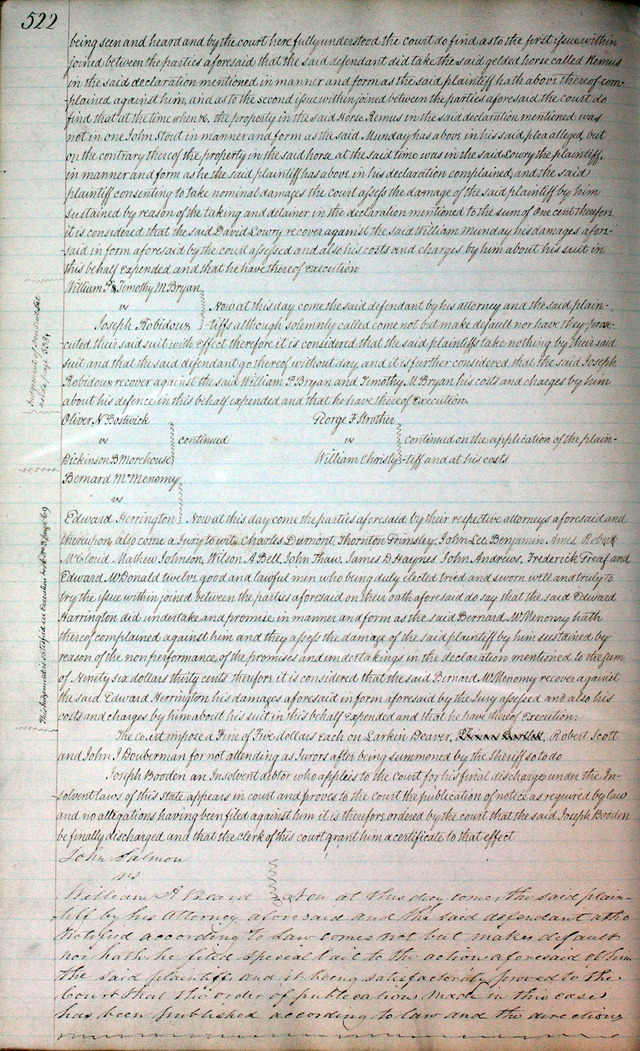 522
being seen and heard and by the court here fully understood the court do find as to the first issue within
joined between the parties aforesaid that the said defendant did take the said gelded horse called Remus
in the said declaration mentioned in manner and form as the said plaintiff hath above thereof com-
-plained against him, and as to the second issue within joined between the parties aforesaid the court do
find that at the time when &c, the property in the said Horse Remus in the said declaration mentioned was
not in one John Stout in manner and form as the said Munday has above in his said plea alleged but
on the contrary thereof the property in the said horse at the said time was in the said Lowry the plaintiff,
in manner and form as he the said plaintiff has above in his declaration complained, and the said
plaintiff consenting to take nominal damages the court assess the damage of the said plaintiff by him
sustained by reason of the taking and detainer in the declaration mentioned to the sum of one cent therefore
it is considered that the said David Lowry recover against the said William Munday his damages afore-
said in form aforesaid by the court assessed and also his costs and charges by him about his suit in
this behalf expended and that he have thereof execution
William P & Timothy M Bryan
vs
Joseph Robidoux
Now at this day come the said defendant by his attorney and the said plain-
-tiffs although solemnly called come not but make default nor have they prose-
cuted their said suit with effect therefore it is considered that the said plaintiffs take nothing by their said
suit and that the said defendant go thereof without day, and it is further considered that the said Joseph
Robidoux recover against the said William P. Bryan and Timothy M Bryan his costs and charges by him
about his defence in this behalf expended and that he have thereof execution
Oliver N Bostwick
vs
Dickinson B Morehouse
continued
George F Strother
vs
William Christy
continued on the application of the plain-
-tiff and at his costs
Bernard McMenomy
vs
Edward Herrington
Now at this day come the parties aforesaid by their respective attorneys aforesaid and
thereupon also come a Jury to wit Charles Dumont, Thornton Grimsley, John Lee, Benjamin Ames, Robert
McCloud, Mathew Johnson, Wilson A Bell, John Thaw, James D Haynes, John Andrews, Frederick Greaf and
Edward McDonald twelve good and lawful men who being duly elected tried and sworn well and truly to
try the issue within joined between the parties aforesaid on their oath aforesaid do say that the said Edward
Harrington did undertake and promise in manner and form as the said Bernard McMenomy hath
thereof complained against him and they assess the damage of the said plaintiff by him sustained by
reason of the nonperformance of the promises and undertakings in the declaration mentioned to the sum
of Ninety six dollars thirty cents therefore it is considered that the said Bernard McMenomy recover against
the said Edward Herrington his damages aforesaid in form aforesaid by the Jury assessed and also his
costs and charges by him about his suit in this behalf expended and that he have thereof Execution.
The court impose a Fine of Five dollars Each on Larkin Deaver, Robert Scott
and John I Douberman for not attending as Jurors after being summoned by the Sheriff so to do
Joseph Booden an Insolvent debtor who applies to the Court for his final discharge under the In-
solvent laws of this State appears in court and proves to the court the publication of notice as required by law
and no allegations having been filed against him it is therefore ordered by the court that the said Joseph Booden
be finally discharged and that the clerk of this court grant him a certificate to that effect
John Salmon
vs
William A Beard
Now at this day comes the said plain-
-tiff by his Attorney aforesaid and the said defendant altho
Notified according to Law comes not but makes default
nor hath he filed special bail to the action aforesaid of him
the said plaintiff, and it being satisfactorily proved to the
Court that the order of publication made in this case
has been published according to law and the directions
This Judgment is satisfied see Execution book No 3 page 69